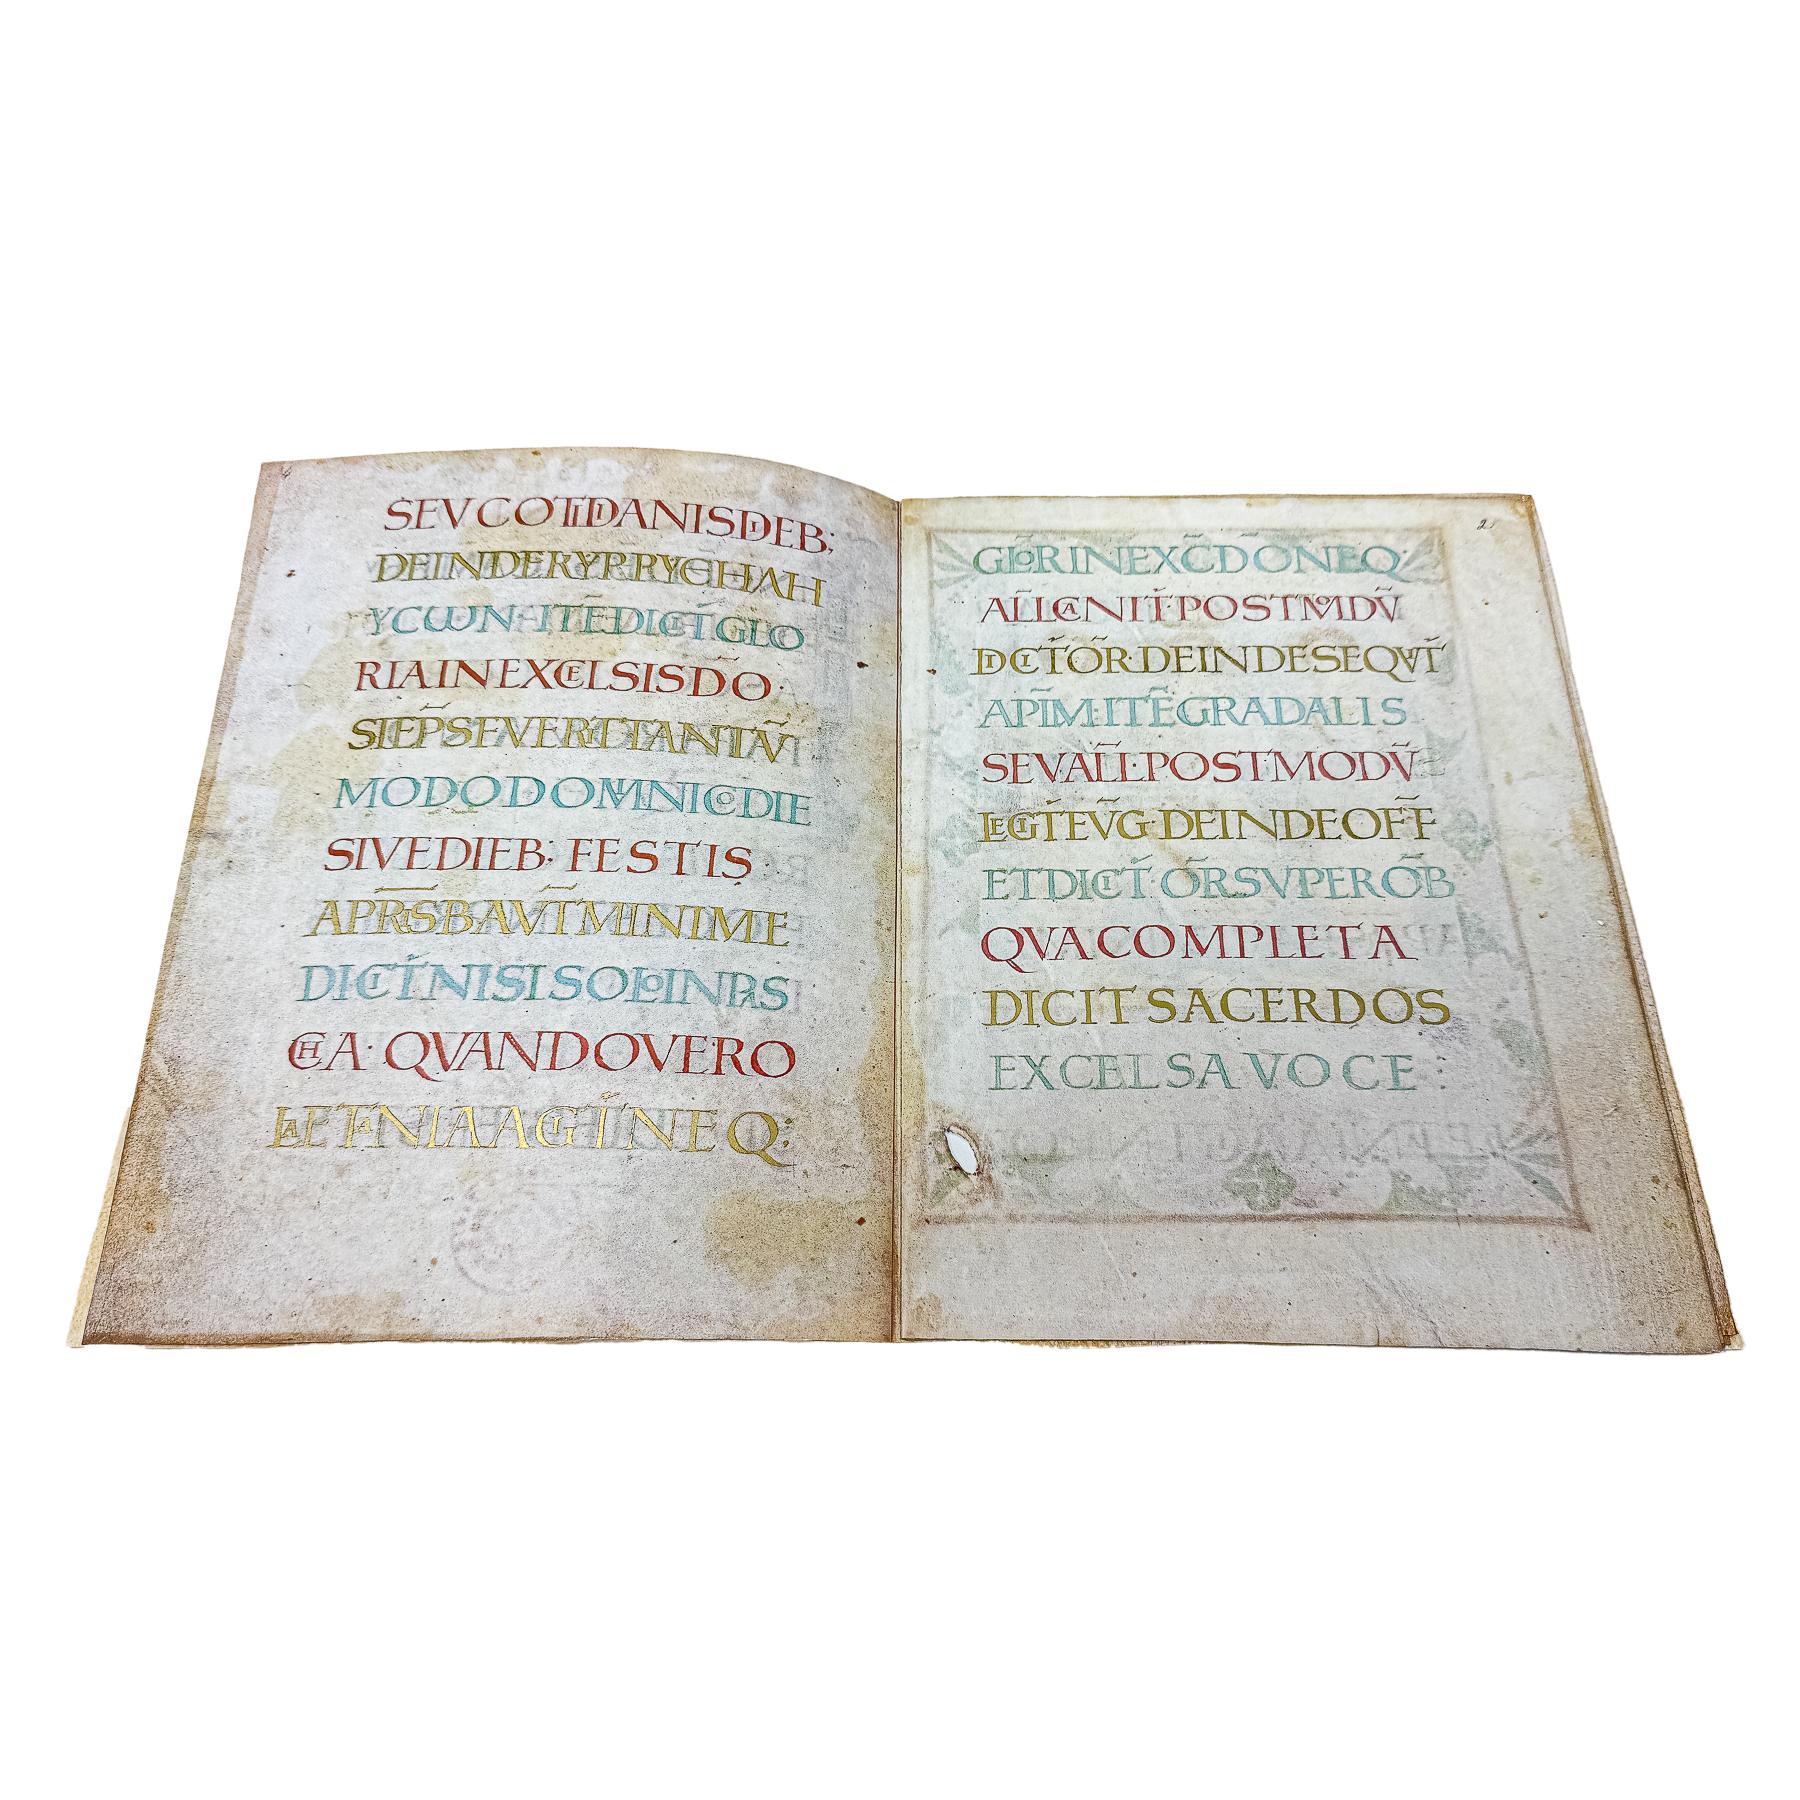 SEV COTIDIANIS DIEB;
DEINDE KYRPYE HΛH
YCωN· ITE̅ DICIT̆ GLO
RIA IN EXCELSIS DO̅·
SI EP̅S FVERIT TANTV̅
MODO DOMINICO DIE
SIVE DIEB; FESTIS
A PRI̅SB AVT̅ MINIME
DICIT̆ NISI SOLO IN PAS
CHA· QVANDO VERO
LAETANIA AGIT̆ NEQ:
2
GLO̅R IN EXC̅ DO̅ NEQ·
ALL̅ CANIT̆· POST MODV̅
DICIT̆ OR̅· DEINDE SEQVIT̆
AP̅LM· ITE̅ GRADALIS
SEV ALL̅· POST MODV̅
LEGIT̆ EV̅G· DEINDE OFF̅
ET DICIT̆ OR̅ SVPER OB̅
QVA COMPLETA
DICIT SACERDOS
EXCELSA VOCE :